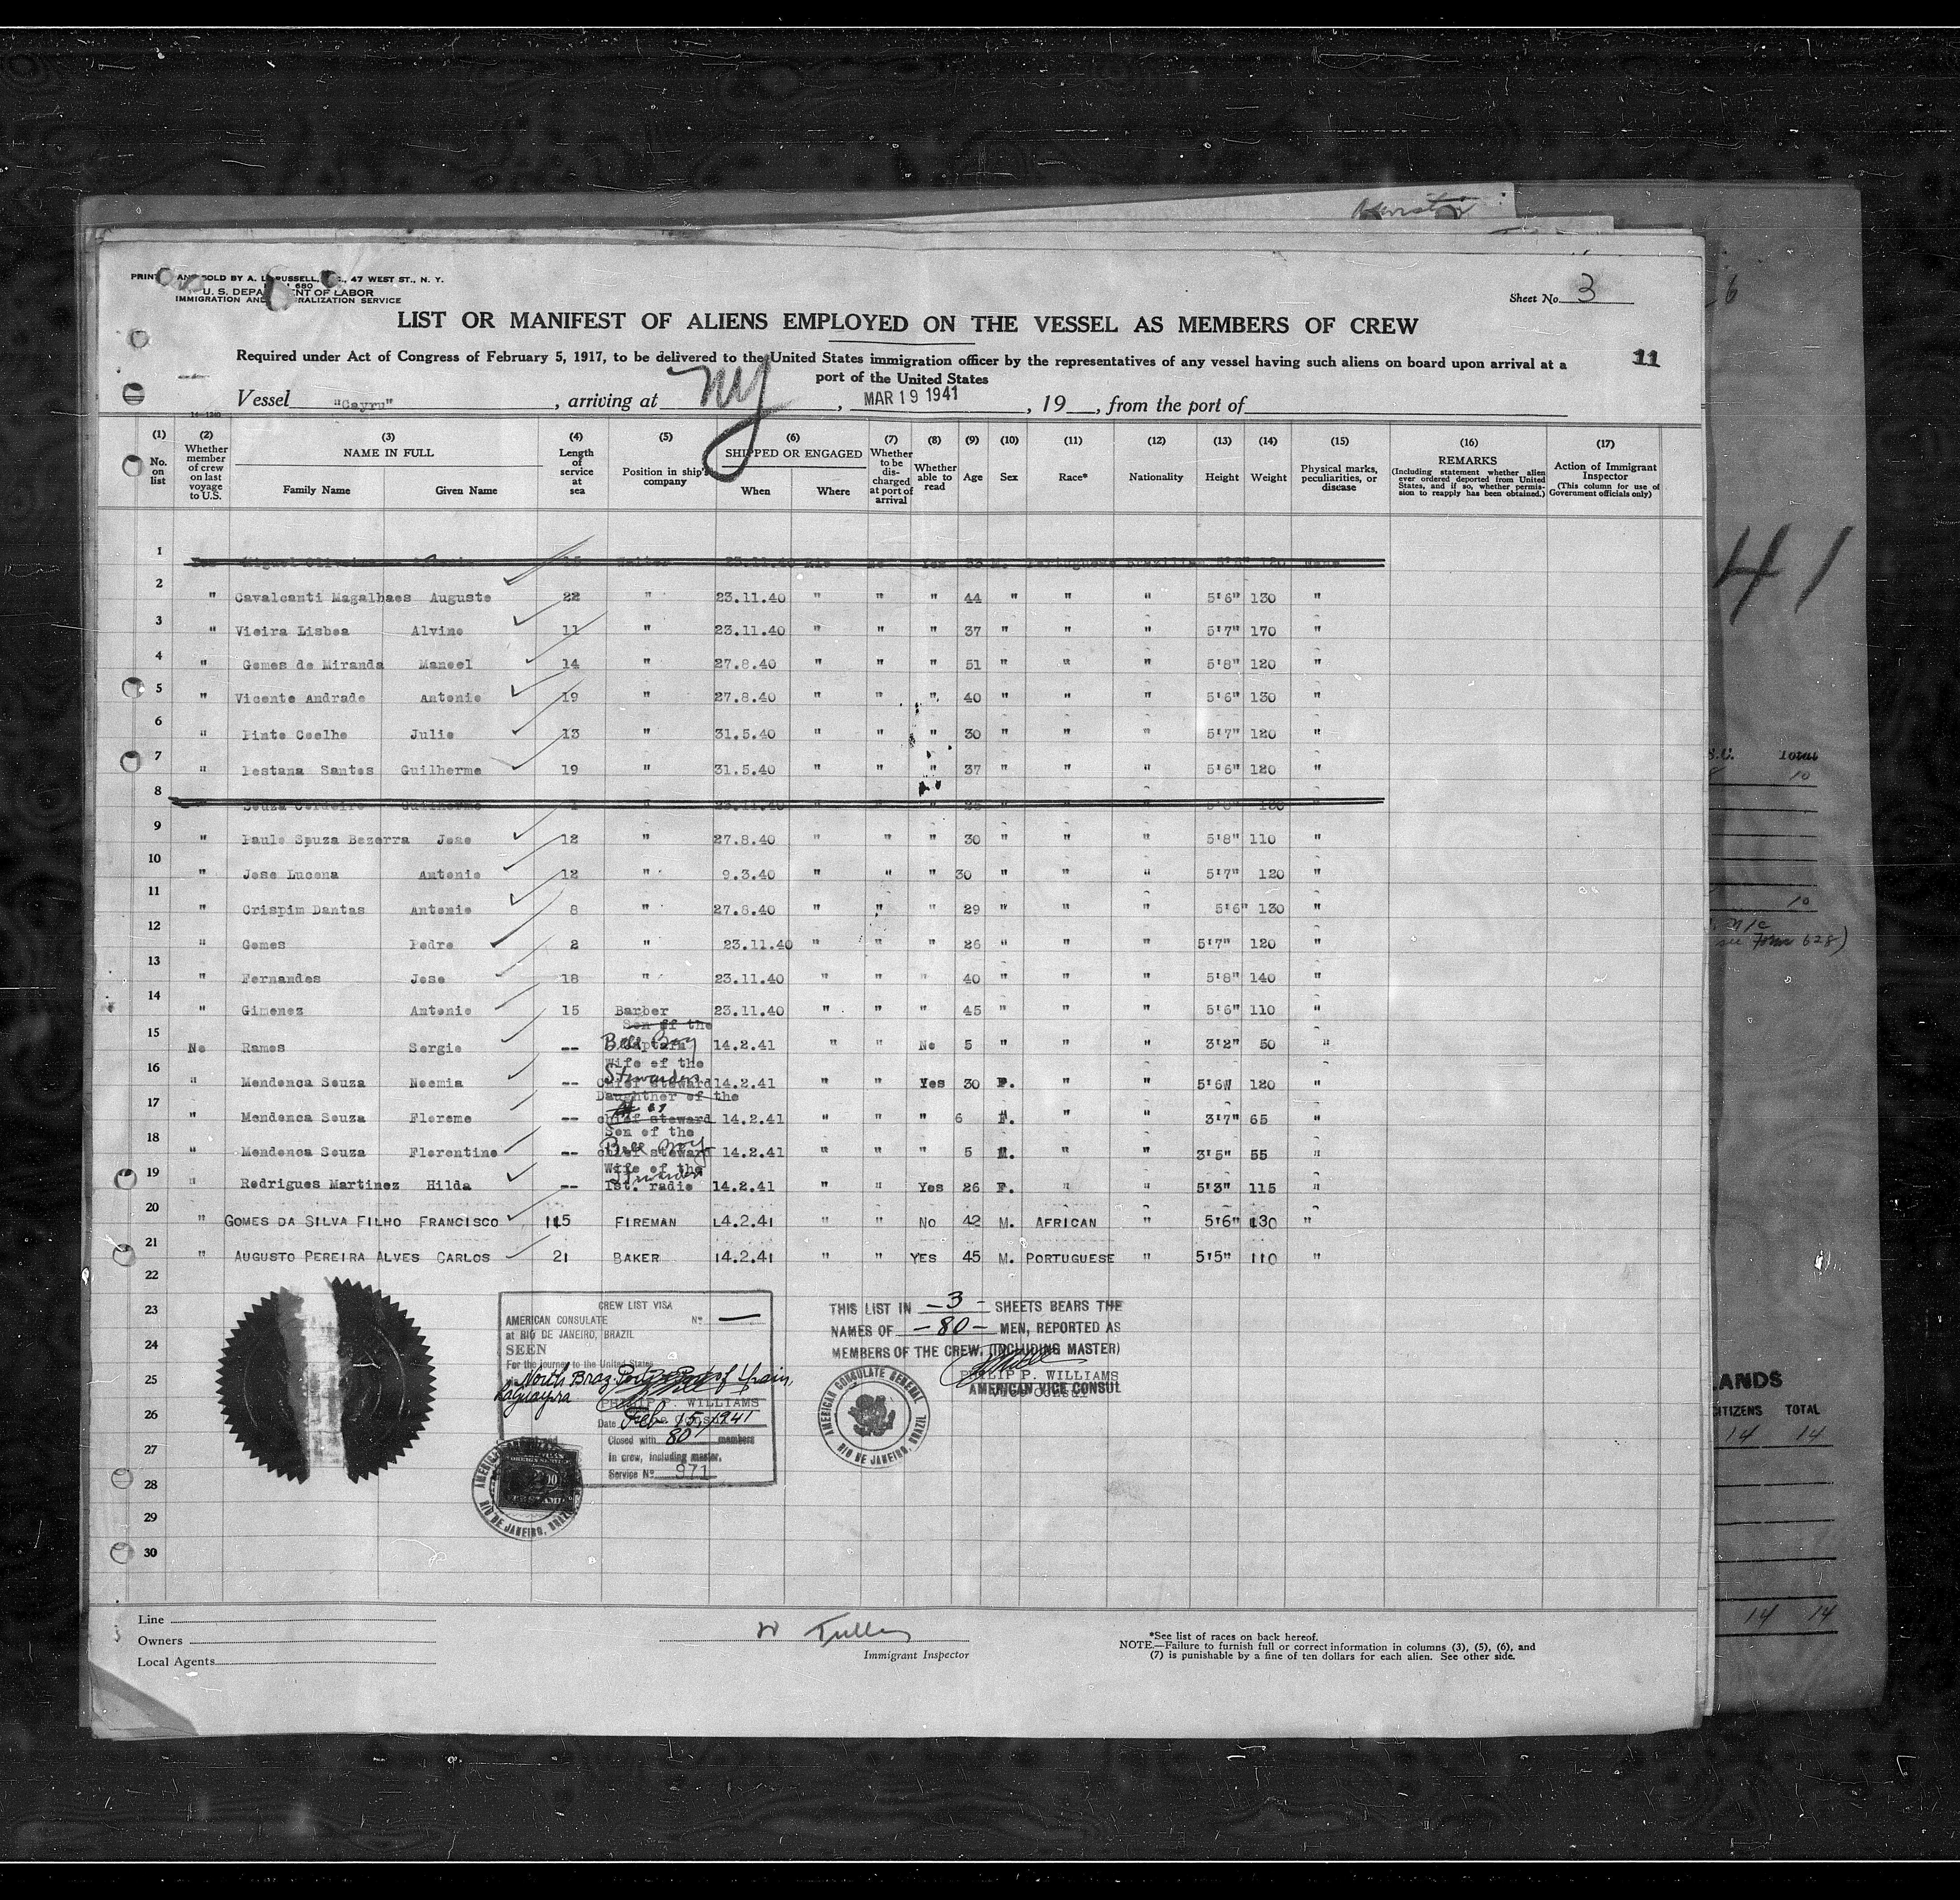 Sheet No. 3
U. S. DEPARTMENT OF LABOR
LIST OR MANIFEST OF ALIENS EMPLOYED ON THE VESSEL AS MEMBERS OF CREW
Required under Act of Congress of February 5, 1917, to be delivered to the United States immigration officer by the representatives of any vessel having such aliens on board upon arrival at a
port of the United States
11
Vessel "Cayru", arriving at NY, MAR 19 1941, 19__, from the port of
(1) No. on list (2) Whether member of crew on last voyage to U.S. (3) NAME IN FULL Family Name Given Name (4) Length of service at sea (5) Position in ship's company (6) SHIPPED OR ENGAGED When Where (7) Whether to be discharged at port of arrival (8) Whether able to read (9) Age (10) Sex (11) Race* (12) Nationality (13) Height (14) Weight (15) Physical marks, peculiarities, or disease (16) REMARKS (Including statement whether alien ever ordered deported from United States, and if so, whether permission to reapply has been obtained.) (17) Action of Immigrant Inspector (This column for use of Government officials only)
1 15 Waiter 23.11.40 Rio Yes 33 M. Portuguese Brazilian 120
2 " Cavalcanti Magalhaes Auguste 22 " 23.11.40 " " " 44 " " " 5'6" 130 "
3 " Vieira Lisbea Alvine 11 " 23.11.40 " " " 37 " " " 5'7" 170 "
4 " Gomes de Miranda Maneel 14 " 27.8.40 " " " 51 " " " 5'8" 120 "
5 " Vicente Andrade Antenie 19 " 27.8.40 " " " 40 " " " 5'6" 130 "
6 " Pinte Ceelhe Julie 13 " 31.5.40 " " " 30 " " " 5'7" 120 "
7 " Pestana Santes Guilherme 19 " 31.5.40 " " " 37 " " " 5'6" 120 "
8 Souza Cordeiro Guilherme 1 " 23.11.40 " 25 " "
9 " Paule Spuza Bezerra Jese 12 " 27.8.40 " " " 30 " " " 5'8" 110 "
10 " Jese Lucena Antenie 12 " 9.3.40 " " " 30 " " " 5'7" 120 "
11 " Crispim Dantas Antenie 8 " 27.8.40 " " " 29 " " " 5'6" 130 "
12 " Gemes Pedre 2 " 23.11.40 " " " 26 " " " 5'7" 120 "
13 " Fernandes Jose 18 " 23.11.40 " " " 40 " " " 5'8" 140 "
14 " Gimenez Antenie 15 Barber 23.11.40 " " " 45 " " " 5'6" 110 "
Son of the
15 No Rames Sergie -- Captain Bell Boy 14.2.41 " " No 5 " " " 3'2" 50 "
Wife of the
16 " Mendenca Seuza Neemia -- Chief steward Stewardess 14.2.41 " " Yes 30 F. " " 5'6" 120 "
Daughther of the
17 " Mendenca Seuza Flereme -- chief steward 14.2.41 " " " 6 F. " " 3'7" 65 "
Son of the
18 " Mendenca Seuza Florentine -- chief steward Bell Boy 14.2.41 " " " 5 M. " " 3'5" 55 "
Wife of the
19 " Redrigues Martinez Hilda -- 1st. radie Stewardess 14.2.41 " " Yes 26 F. " " 5'3" 115 "
20 " GOMES DA SILVA FILHO FRANCISCO 15 FIREMAN 14.2.41 " " No 42 M. AFRICAN " 5'6" 130 "
21 " AUGUSTO PEREIRA ALVES CARLOS 21 BAKER 14.2.41 " " YES 45 M. PORTUGUESE " 5'5" 110 "
22
23
24
25
26
27
28
29
30
CREW LIST VISA
AMERICAN CONSULATE No —
at RIO DE JANEIRO, BRAZIL
SEEN
For the journey to the United States
North Braz Ports Port of Spain,
LaGuayra
PHILIP P. WILLIAMS
Date Feb 15, 1941
Closed with 80 members
in crew, including master.
Service No 971
RIO DE JANEIRO, BRAZIL
THIS LIST IN -3- SHEETS BEARS THE
NAMES OF -80- MEN, REPORTED AS
MEMBERS OF THE CREW, (INCLUDING MASTER)
PHILIP P. WILLIAMS
AMERICAN VICE CONSUL
AMERICAN CONSULATE GENERAL
RIO DE JANEIRO, BRAZIL
Line
Owners
Local Agents
Immigrant Inspector
*See list of races on back hereof.
NOTE.—Failure to furnish full or correct information in columns (3), (5), (6), and
(7) is punishable by a fine of ten dollars for each alien. See other side.
41
Total
10
10
628)
LANDS
CITIZENS TOTAL
14 14
14 14